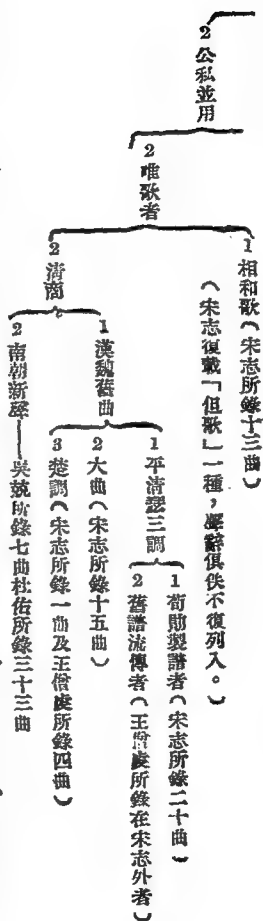 2 公私並用
2 唯歌者
1 相和歌（宋志所錄十三曲）
（宋志復載「但歌」一種，聲辭俱佚不復列入。）
2 清商
1 漢魏舊曲
1 平清瑟三調
1 荀勗製譜者（宋志所錄二十曲）
2 舊譜流傳者（王僧虔所錄在宋志外者）
2 大曲（宋志所錄十五曲）
3 楚調（宋志所錄一曲及王僧虔所錄四曲）
2 南朝新聲——吳兢所錄七曲杜佑所錄三十三曲